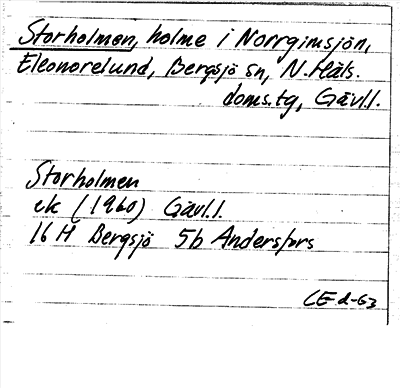 Storholmen, holme i Norrgimsjön,
Eleonorelund, Bergsjö sn, N. Häls.
doms.tg, Gävl.l.
Storholmen
ek (1960) Gävl.l.
16 H Bergsjö 5b Andersfors
CE d-63